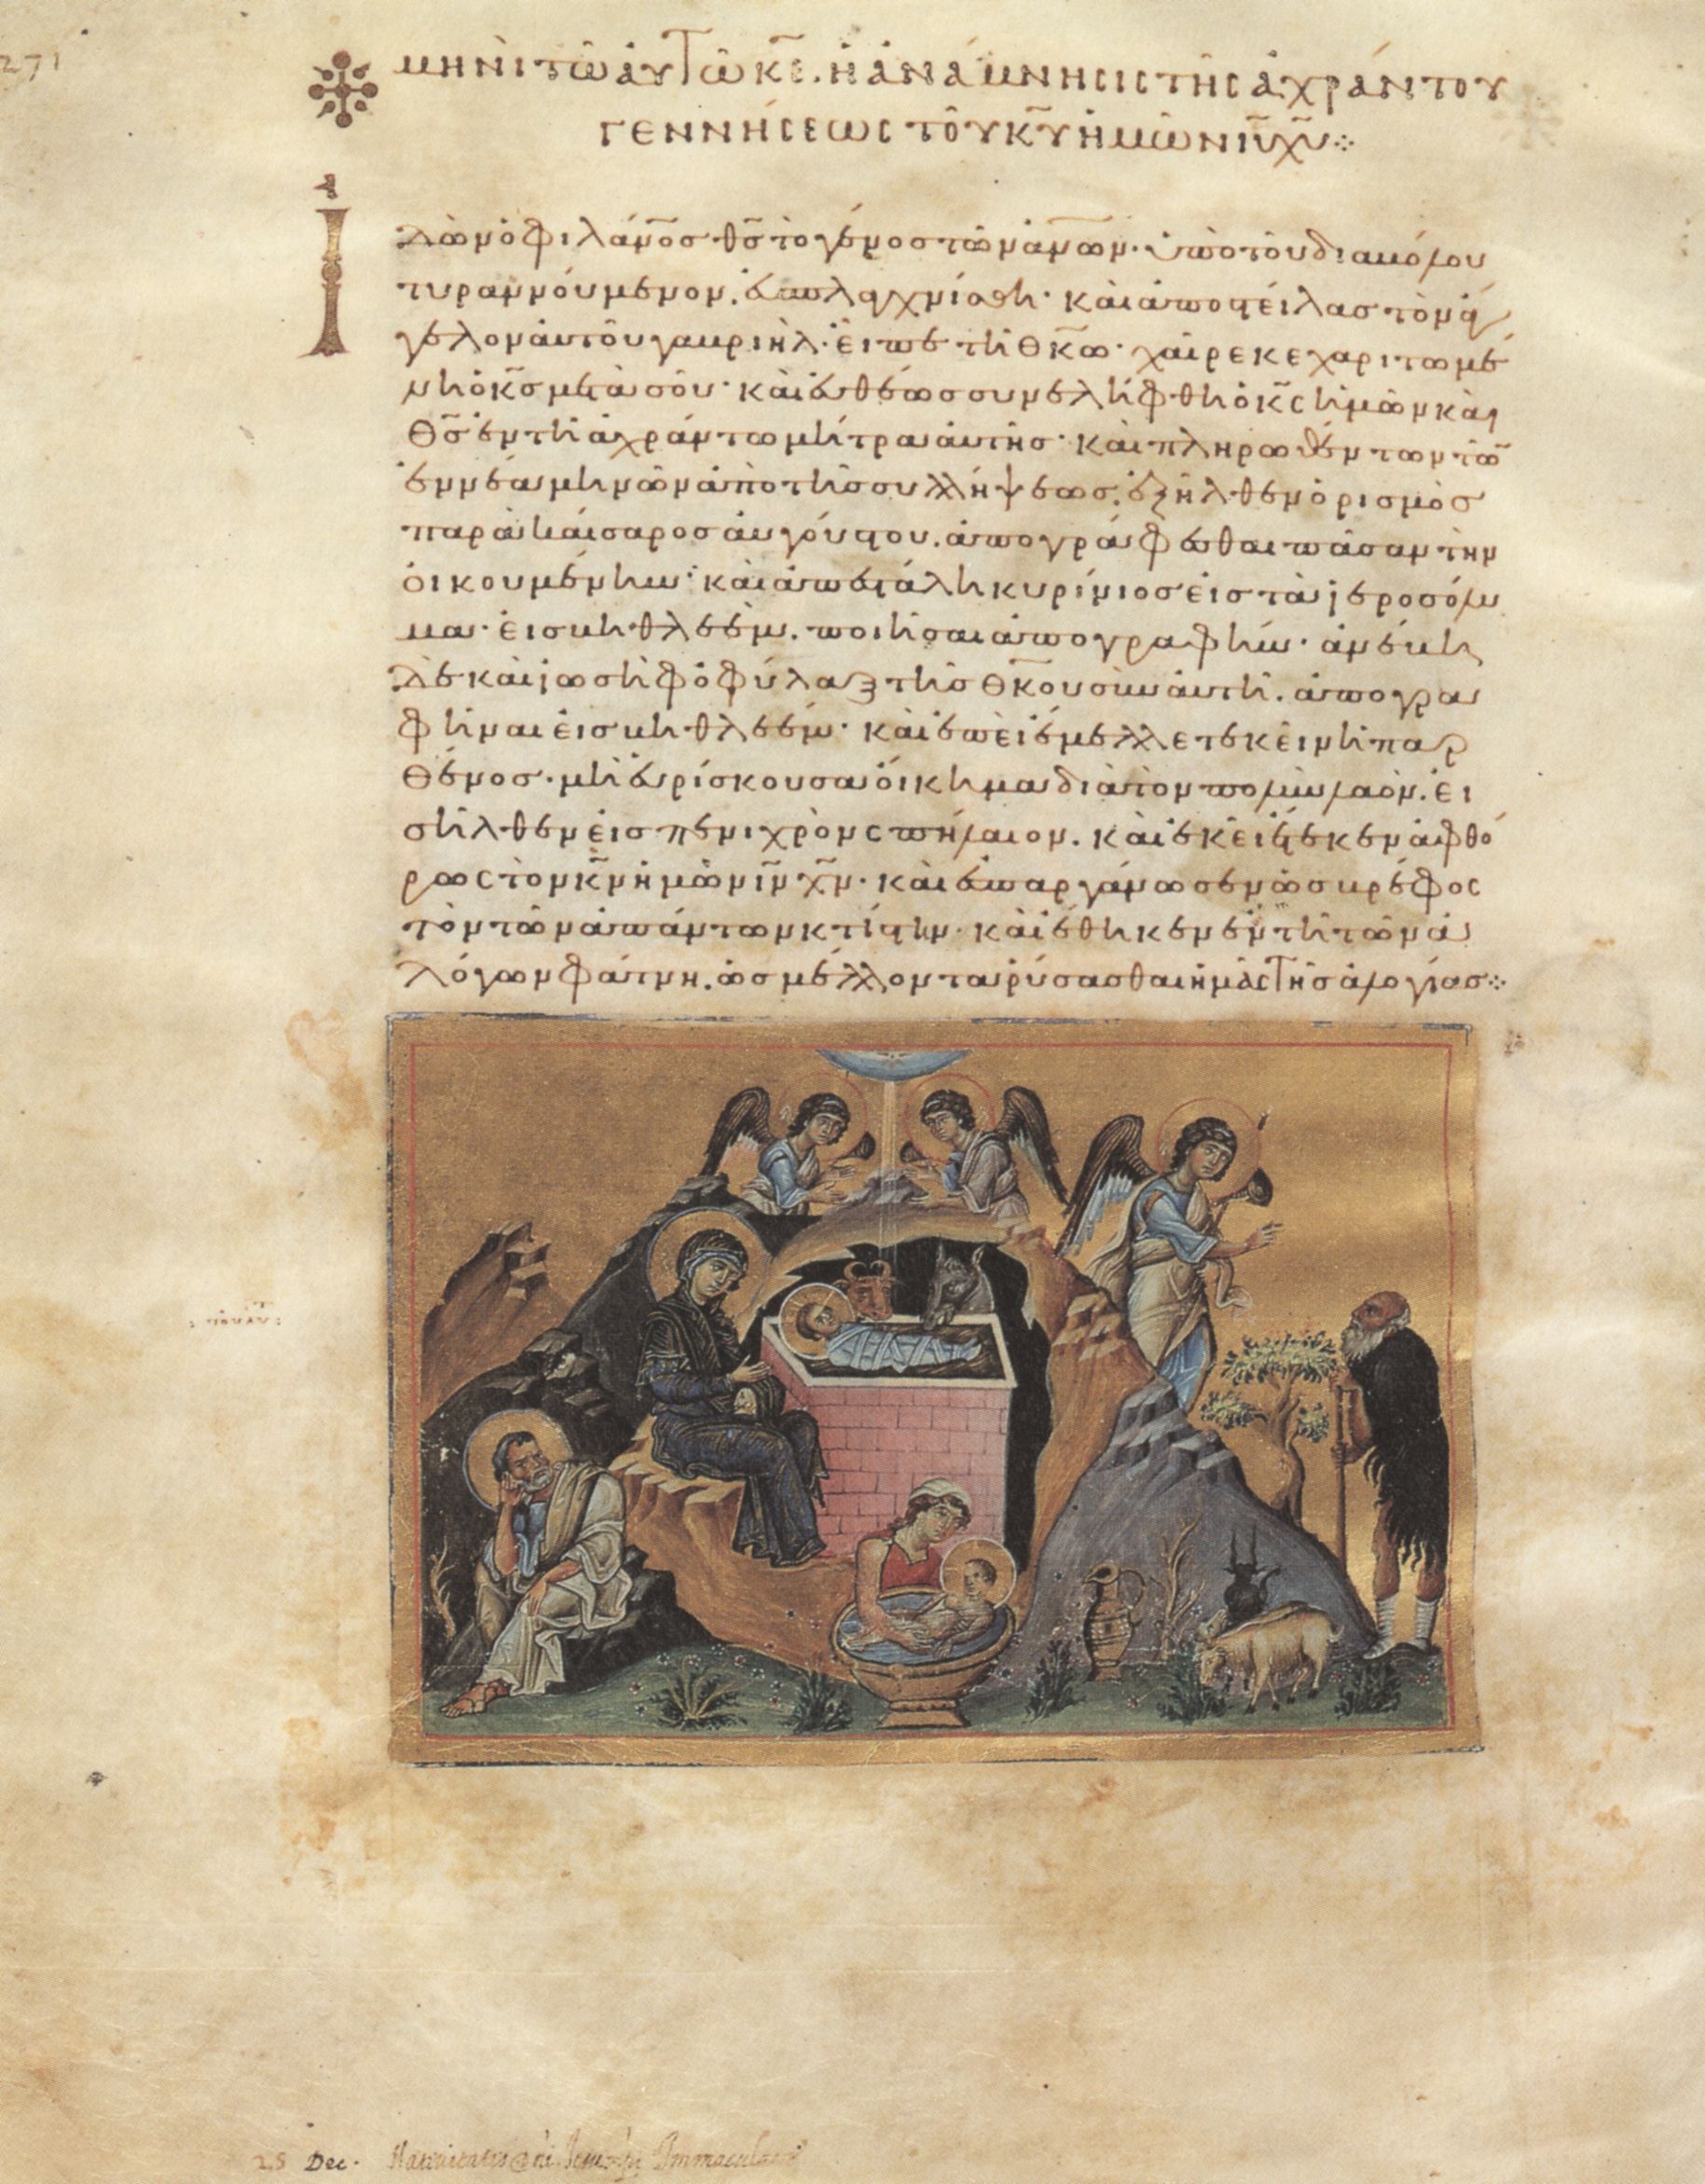 271
μηνὶ τῶ αὐτῶ κε̄. ἡ ἀνάμνησις τῆς ἀχράντου
γεννήσεως τοῦ κ̄υ ἡμῶν ῑυ χ̄υ ⁘
Ἰ
δὼν ὁ φιλάν̄ος θ̄ς τὸ γένος τῶν ἀν̄ων. ὑπὸ τοῦ διαβόλου
τυραννούμενον. ἐσπλαγχνίσθη· καὶ ἀποστείλας τὸν ἄγ
γελον αὐτοῦ γαβριὴλ· εἶπε τῆ θ̄κω· χαῖρε κεχαριτωμέ
νη ὁ κ̄ς μετὰ σοῦ· καὶ εὐθέως συνελήφθη ὁ κ̄ς ἡμῶν καὶ
θ̄ς ἐν τῆ ἀχράντω μήτρα αὐτῆς· καὶ πληρωθέντων τῶ̄
ἐννέα μηνῶν ἀπὸ τῆς συλλήψεως. ἐξῆλθεν ὁρισμὸς
παρὰ καίσαρος αὐγούστου. ἀπογράφεσθαι πᾶσαν τὴν
οἰκουμένην· καὶ ἀπεστάλη κυρίνιος εἰς τὰ ἱεροσόλυ
μα· εἰς βηθλεὲμ. ποιῆσαι ἀπογραφήν· ἀνέβη
δὲ καὶ ἰωσὴφ ὁ φύλαξ τῆς θ̄κου σὺν αὐτῆ. ἀπογρα
φῆναι εἰς βηθλεέμ· καὶ ἐπεὶ ἔμελλε τεκεῖν ἡ παρ
θένος. μὴ εὑρίσκουσα οἴκημα διὰ τὸν πολὺν λαὸν. εἰ
σῆλθεν εἰς πενιχρὸν σπήλαιον. καὶ ἐκεῖ ἔτεκεν ἀφθό
ρως τὸν κ̄ν ἡμῶν ῑν χ̄ν. καὶ ἐσπαργάνωσεν ὡς βρέφος
τὸν τῶν ἁπάντων κτίστην. καὶ ἔθηκεν ἐν τῆ τῶν ἀ
λόγων φάτνη. ὡς μέλλοντα ῥύσασθαι ἡμᾶς τῆς ἀλογίας ⁘
25 Dec. Nativitatis Immaculatae